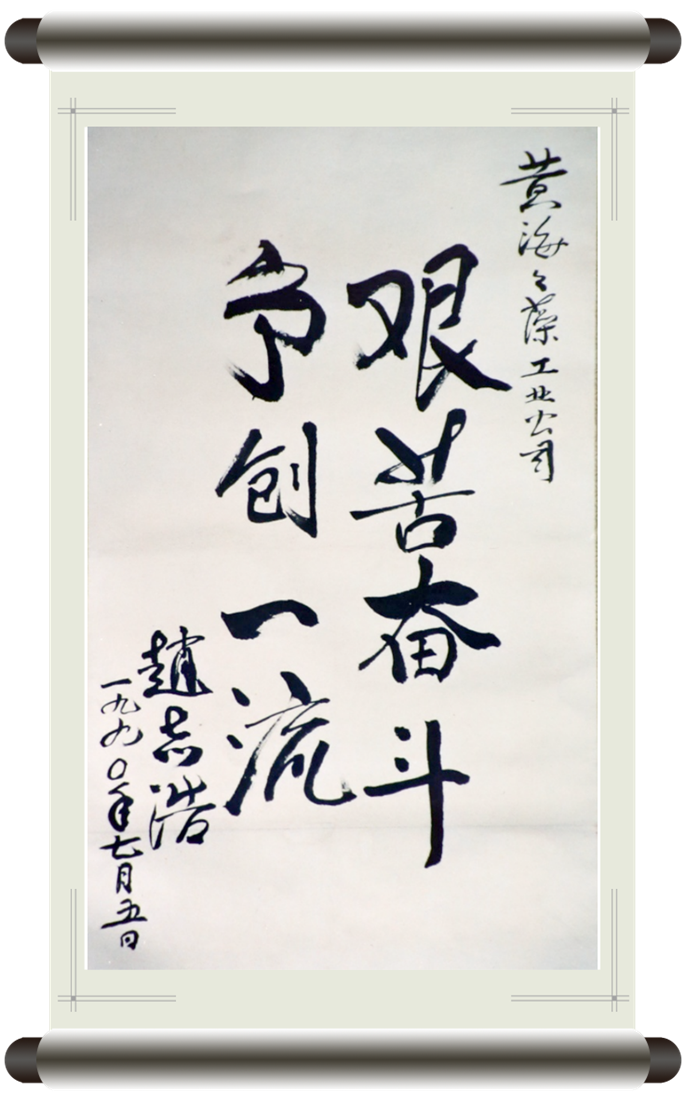 黄海海藻工业公司
艰苦奋斗
争创一流
赵志浩
一九九〇年七月五日